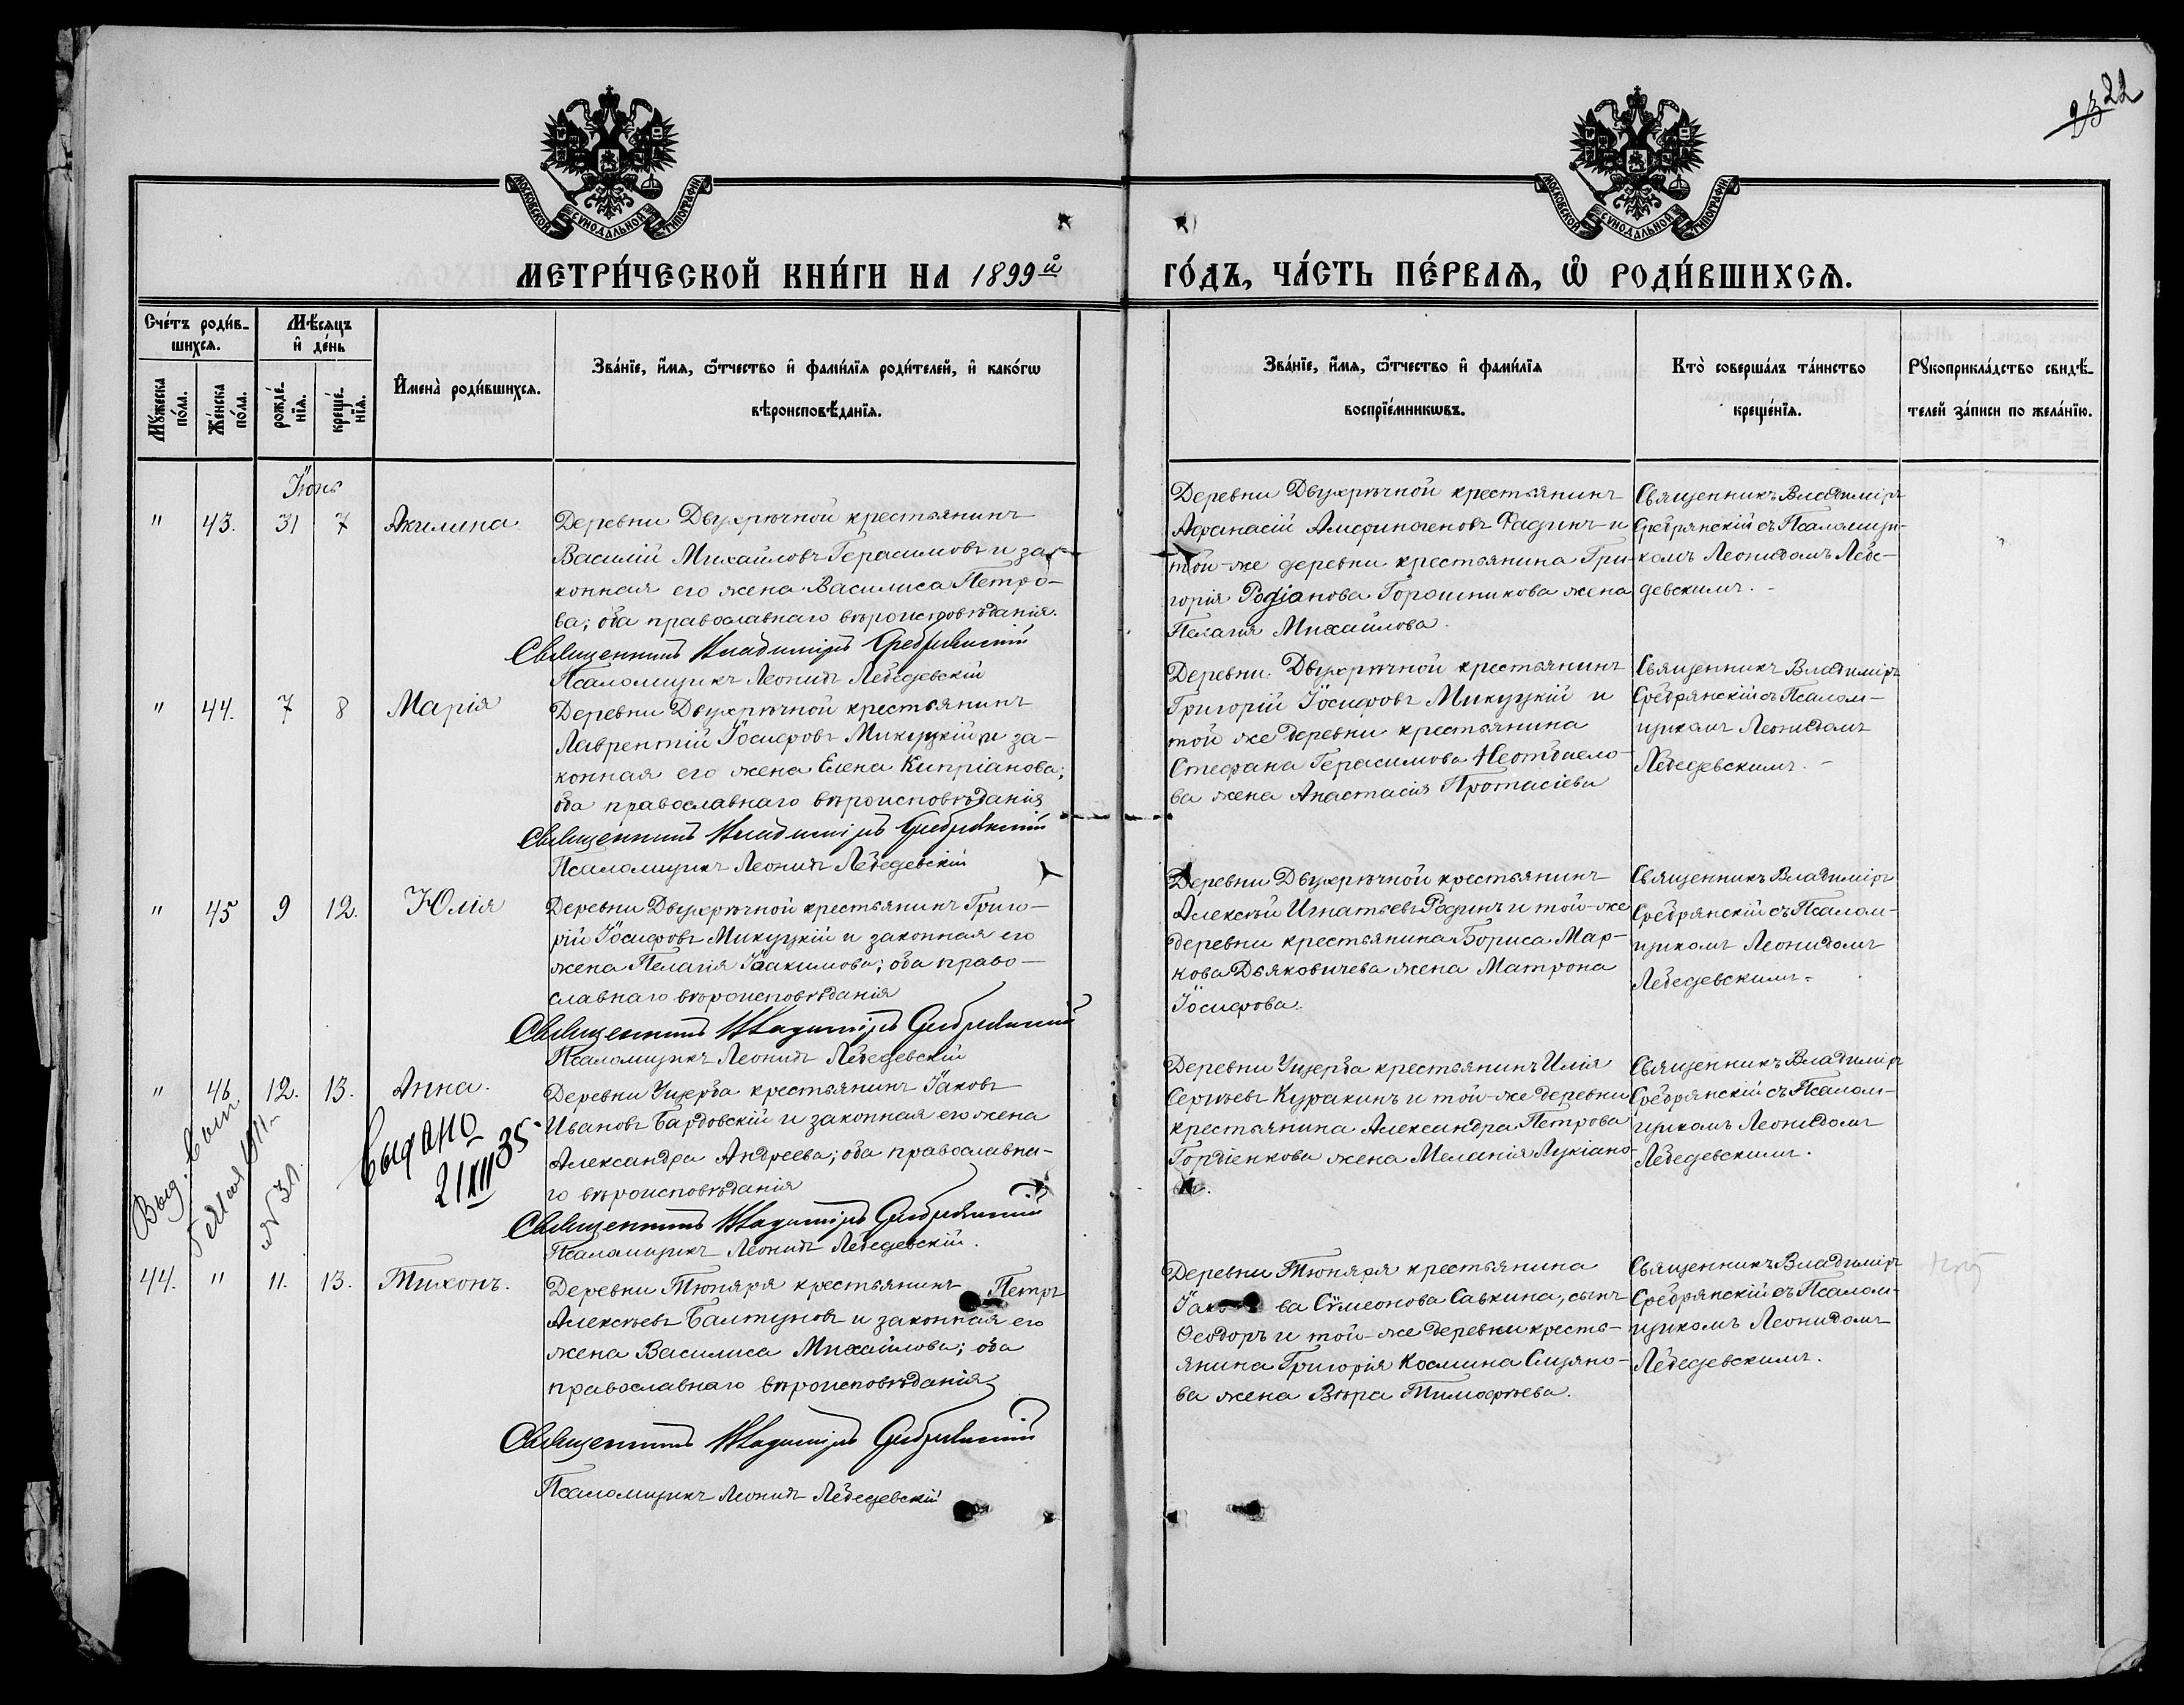 23 22
МОСКОВСКОЙ СУНОДАЛЬНОЙ ТИПОГРАФІИ.
МОСКОВСКОЙ СУНОДАЛЬНОЙ ТИПОГРАФІИ.
МЕТРИ́ЧЕСКОЙ КНИ́ГИ НА 1899й
ГО́ДЪ, ЧА́СТЬ ПЕ́РВАѦ, Ѡ҆ РОДИ́ВШИХСѦ.
Сче́тъ роди́в-
шихсѧ.
Мѣ́сѧцъ
и҆ де́нь
Мꙋ́жеска
по́ла.
Же́нска
по́ла.
рожде́-
нїѧ.
креще́-
нїѧ.
И҆мена̀ роди́вшихсѧ.
Зва́нїе, и҆́мѧ, ѻ҆́тчество и҆ фами́лїѧ роди́телей, и҆ како́гѡ
вѣроисповѣ́данїѧ.
Зва́нїе, и҆́мѧ, ѻ҆́тчество и҆ фами́лїѧ
воспрїе́мникѡвъ.
Кто̀ соверша́лъ та́инство
креще́нїѧ.
Рꙋкоприкла́дство свидѣ́-
телей за́писи по жела́нїю.
Іюнь
" 43. 31 7 Акилина
Деревни Двухрѣчной крестьянинъ
Василій Михайловъ Герасимовъ и за-
конная его жена Василиса Петро-
ва; оба православнаго вѣроисповѣданія.
Священникъ Владиміръ Сребрянскій
Псаломщикъ Леонидъ Лебедевскій
Деревни Двухрѣчной крестьянинъ
Афанасій Амфиногеновъ Фадинъ и
той-же деревни крестьянина Гри-
горія Родіонова Горошникова жена
Пелагія Михайлова.
Священникъ Владиміръ
Сребрянскій съ Псаломщи-
комъ Леонидомъ Лебе-
девскимъ.
" 44. 7 8 Марія
Деревни Двухрѣчной крестьянинъ
Лаврентій Іосифовъ Микуцкій и за-
конная его жена Елена Кипріанова;
оба православнаго вѣроисповѣданія
Священникъ Владиміръ Сребрянскій
Псаломщикъ Леонидъ Лебедевскій
Деревни Двухрѣчной крестьянинъ
Григорій Іосифовъ Микуцкій и
той же деревни крестьянина
Стефана Герасимова
ва жена Анастасія Протасіева
Священникъ Владиміръ
Сребрянскій съ Псалом-
щикомъ Леонидомъ
Лебедевскимъ.
" 45 9 12. Юлія
Деревни Двухрѣчной крестьянинъ Григо-
рій Іосифовъ Микуцкій и законная его
жена Пелагія Іоакимова; оба право-
славнаго вѣроисповѣданія
Священникъ Владиміръ Сребрянскій
Псаломщикъ Леонидъ Лебедевскій
Деревни Двухрѣчной крестьянинъ
Алексѣй Игнатьевъ Родинъ и той-же
деревни крестьянина Бориса Мар-
кова Дьяковичева жена Матрона
Іосифова.
Священникъ Владиміръ
Сребрянскій съ Псалом-
щикомъ Леонидомъ
Лебедевскимъ.
" 46 12. 13. Анна.
Выдано
21 XII 35
Выд.
1911
Деревни Ущерба крестьянинъ Іаковъ
Ивановъ Бардовскій и законная его жена
Александра Андреева; оба православна-
го вѣроисповѣданія
Священникъ Владиміръ Сребрянскій
Псаломщикъ Леонидъ Лебедевскій.
Деревни Ущерба крестьянинъ Илія
Сергѣевъ Куракинъ и той-же деревни
крестьянина Александра Петрова
Гордіенкова жена Меланія Лукіано-
ва.
Священникъ Владиміръ
Сребрянскій съ Псалом-
щикомъ Леонидомъ
Лебедевскимъ.
44. " 11. 13. Тихонъ.
Деревни Тюняря крестьянинъ Петръ
Алексѣевъ Балтуновъ и законная его
жена Василиса Михайлова; оба
православнаго вѣроисповѣданія
Священникъ Владиміръ Сребрянскій
Псаломщикъ Леонидъ Лебедевскій
Деревни Тюняря крестьянина
Іакова Сѵмеонова Савкина, сынъ
Ѳеодоръ и той-же деревни кресть-
янина Григорія Космина Сизяно-
ва жена Вѣра Тимофѣева.
Священникъ Владиміръ
Сребрянскій съ Псалом-
щикомъ Леонидомъ
Лебедевскимъ.